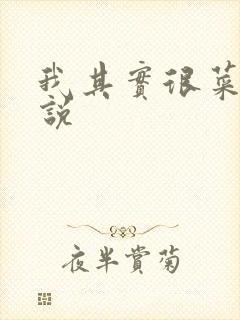 我其實很菜
說
夜半賞菊